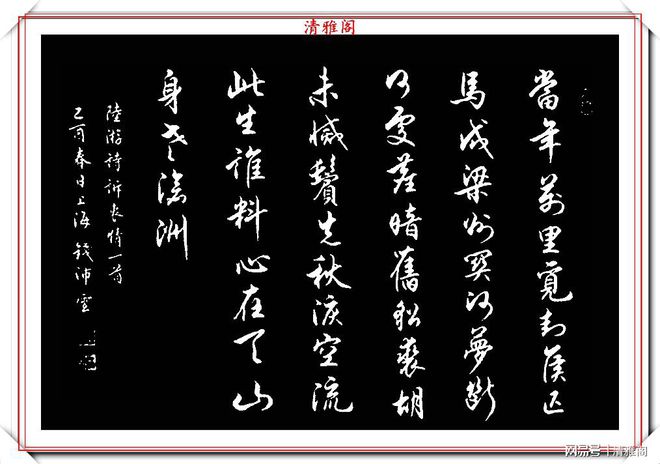 清雅阁
當年萬里覓封侯匹
馬戍梁州關河夢斷
何處塵暗舊貂裘胡
未滅鬢先秋淚空流
此生誰料心在天山
身老滄洲
陸游詩訴衷情一首
乙酉春日上海錢沛雲
网易号 | 清雅阁